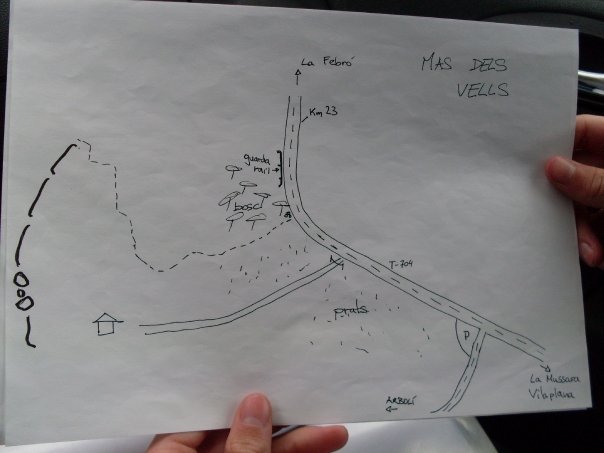 La Febró
MAS DELS
VELLS
Km 23
guarda
rail
bosc
T-704
prats
P
La Mussara
Vilaplana
ARBOLÍ